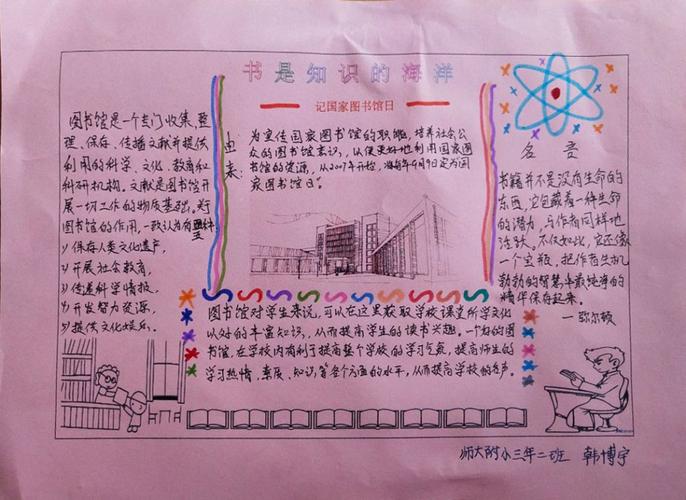 书是知识的海洋
记国家图书馆日
图书馆是一个专门收集、整
理、保存、传播文献并提供
利用的科学、文化、教育和
科研机构。文献是图书馆开
展一切工作的物质基础。对
图书馆的作用,一致认为有
1)保存人类文化遗产,
2)开展社会教育,
3)传递科学情报,
4)开发智力资源,
5)提供文化娱乐。
由来:
为宣传国家图书馆的职能,培养社会公
众的图书馆意识,以便更好地利用国家图
书馆的资源,从2009年开始,将每年9月9日定为国
家图书馆日。
名言
书籍并不是没有生命的
东西,它包藏着一种生命
的潜力,与作者同样地
活跃。不仅如此,它还像
一个宝瓶,把作者生机
勃勃的智慧中最纯净的
精华保存起来。
—弥尔顿
图书馆对学生来说,可以在这里获取学校课堂所学文化
以外的丰富知识,从而提高学生的读书兴趣。一个好的图
书馆,在学校内有利于提高整个学校的学习气氛,提高师生的
学习热情、素养、知识,等各个方面的水平,从而提高学校的名声。
师大附小三年二班 韩博宇